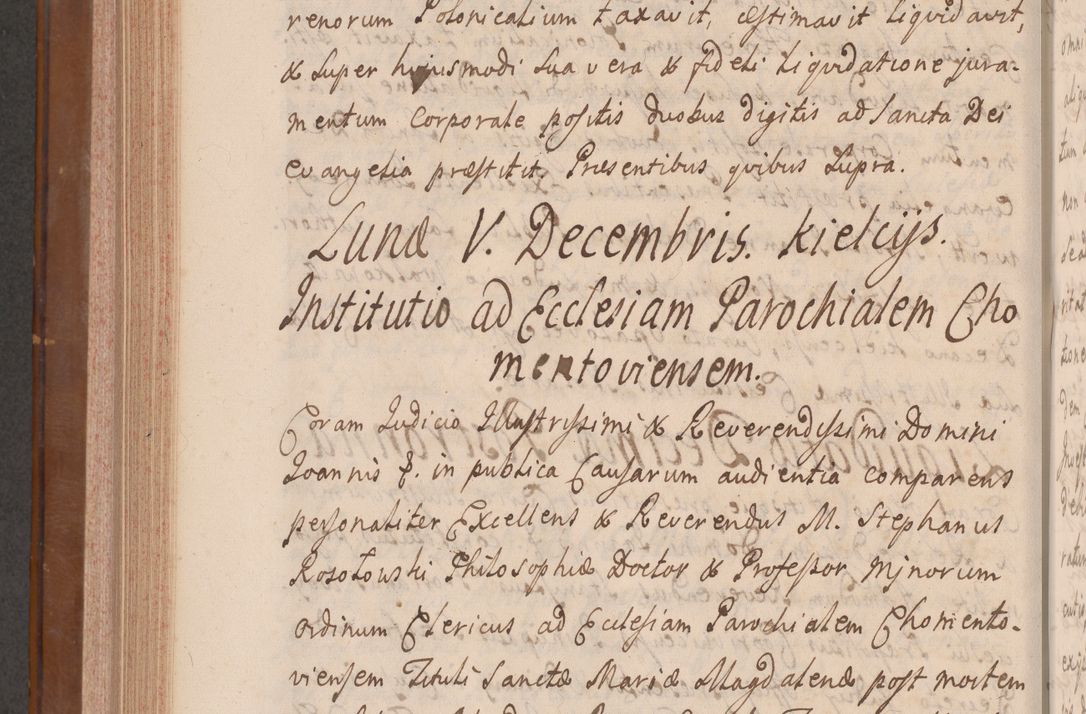 renorum Polonicalium taxavit, æstimavit liquidavit,
& super hujusmodi sua vera & fideli liqvidatione jura-
mentum corporale positis duobus digitis ad Sancta Dei
evangelia præstitit. Præsentibus qvibus supra.
Lunæ V. Decembris. Kielcijs.
Institutio ad Ecclesiam Parochialem Cho
mentoviensem.
Coram Judicio Illustrissimi & Reverendissimi Domini
Joannis &. in publica Causarum audientia comparens
personaliter Excellens & Reverendus M. Stephanus
Rosołowski Philosophiæ Doctor & Professor Mjnorum
ordinum Clericus ad Ecclesiam Parochialem Chomento-
viensem Tituli Sanctæ Mariæ Magdalenæ post mortem